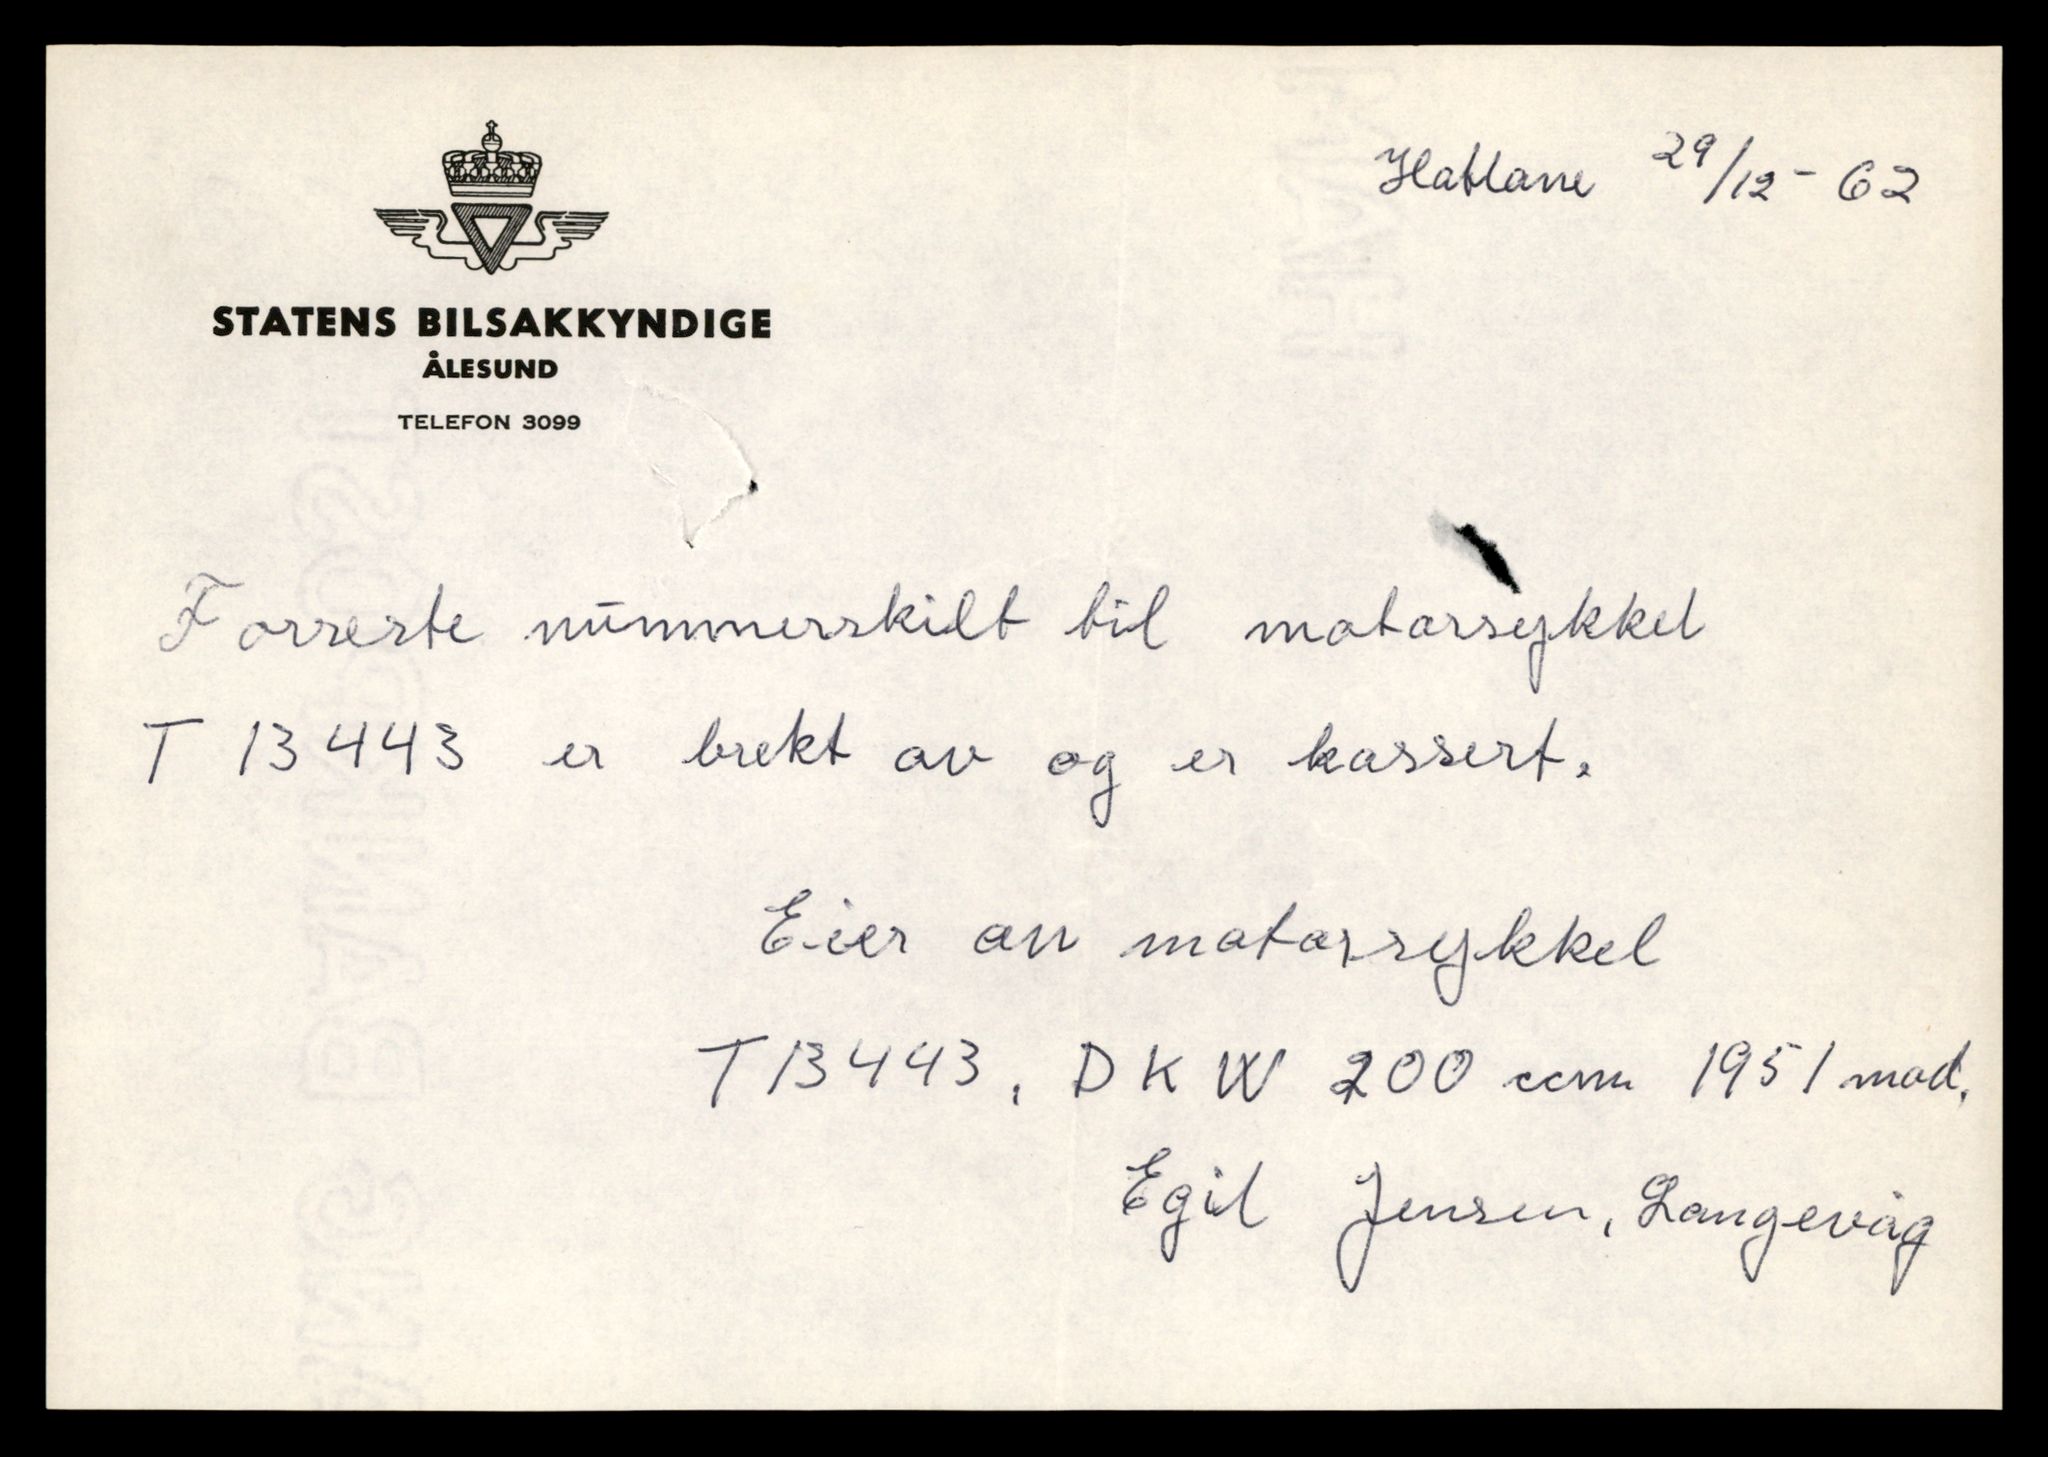 Hatlane 29/12-62
STATENS BILSAKKYNDIGE
ÅLESUND
TELEFON 3099
Forreste nummerskilt til motorsykkel
T 13443 er brekt av og er kassert.
Eier av motorsykkel
T 13443, DKW 200 ccm 1951 mod.
Egil Jensen, Langevåg